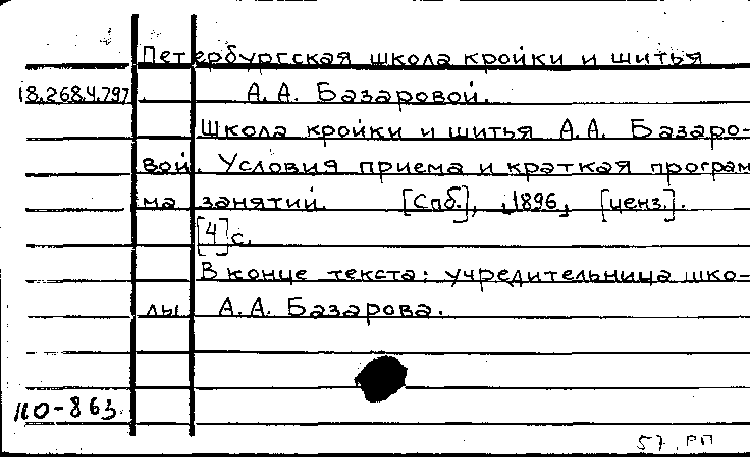 Петербургская школа кройки и шитья
18.268.4.797 А.А. Базаровой.
Школа кройки и шитья А.А. Базаро-
вой. Условия приема и краткая програм
ма занятий. [Спб.], 1896, [ценз.].
[4] с.
В конце текста: учредительница шко-
лы А.А. Базарова.
Ю-863
57 РП